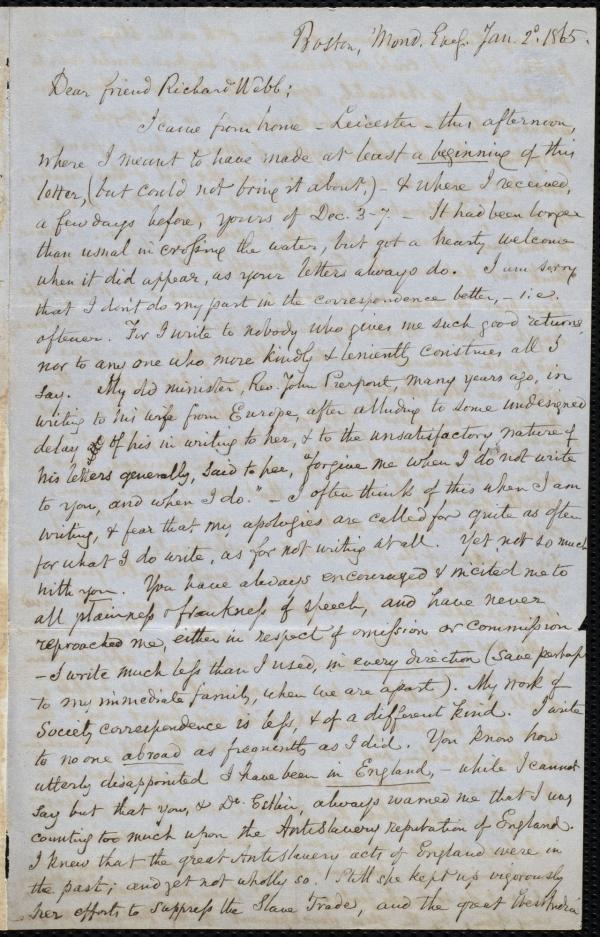 Boston, Mond. Eveg. Jan. 2d. 1865.
Dear friend Richard Webb;
I came from home - Leicester - this afternoon,
where I meant to have made at least a beginning of this
letter, (but could not bring it about,) - & where I received,
a few days before, yours of Dec. 3-7. - It had been longer
than usual in crossing the water, but got a hearty welcome
when it did appear, as your letters always do. I am sorry
that I don't do my part in the correspondence better, - i.e.
oftener. For I write to nobody who gives me such good returns,
nor to any one who more kindly & leniently construes all I
say. My old minister, Rev. John Pierpont, many years ago, in
writing to his wife from Europe, after alluding to some undesigned
delay of his in writing to her, & to the unsatisfactory nature of
his letters generally, said to her, "forgive me when I do not write
to you, and when I do." - I often think of this when I am
writing, & fear that my apologies are called for quite as often
for what I do write, as for not writing at all. Yet not so much
with you. You have always encouraged & incited me to
all plainness & frankness of speech, and have never
reproached me, either in respect of omission or commission
- I write much less than I used, in every direction (save perhaps
to my immediate family, when we are apart). My work of
Society correspondence is less, & of a different kind. I write
to no one abroad as frequently as I did. You know how
utterly disappointed I have been in England, - while I cannot
say but that you, & Dr. Estlin, always warned me that I was
counting too much upon the Antislavery reputation of England.
I knew that the great Antislavery acts of England were in
the past; and yet not wholly so! Still she kept up vigorously
her efforts to suppress the Slave Trade, and the great West India